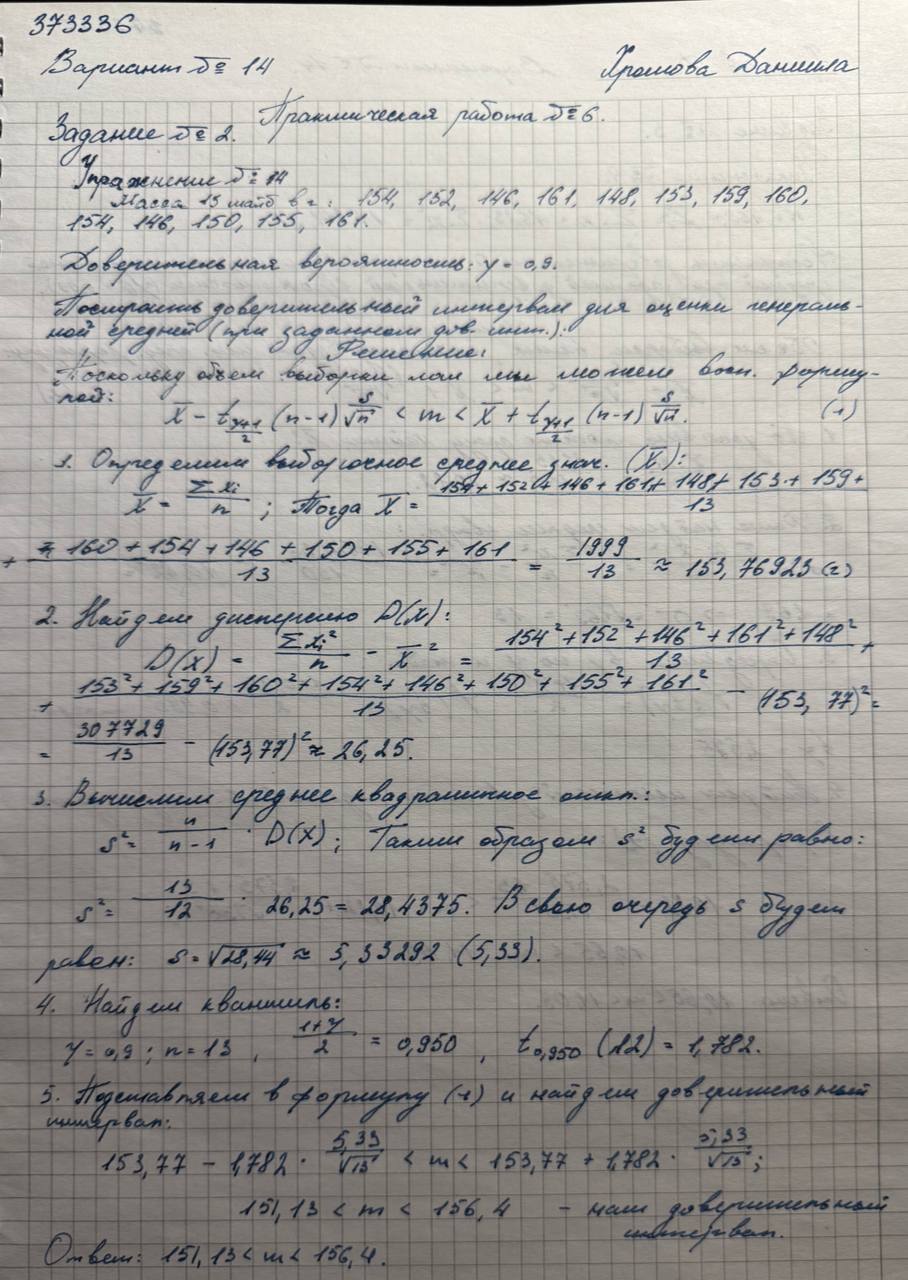 373336
Вариант № 14 Хромова Даниила
Практическая работа №6.
Задание № 2.
Упражнение № 14
Масса 13 шайб в г: 154, 152, 146, 161, 148, 153, 159, 160,
154, 146, 150, 155, 161.
Доверительная вероятность: γ = 0,9.
Построить доверительный интервал для оценки генераль-
ной средней (при заданном дов. инт.).
Решение:
Поскольку объем выборки мал мы можем восп. форму-
лой:
X̅ - t_{(γ+1)/2} (n-1) s/√n < m < X̅ + t_{(γ+1)/2} (n-1) s/√n. (1)
1. Определим выборочное среднее знач. (X̅):
X̅ = Σxi/n ; Тогда X̅ = (154 + 152 + 146 + 161 + 148 + 153 + 159 +)/13
+ (160 + 154 + 146 + 150 + 155 + 161)/13 = 1999/13 ≈ 153,76923 (г)
2. Найдем дисперсию D(x):
D(x) = Σxi²/n - X̅² = (154² + 152² + 146² + 161² + 148²)/13 +
+ (153² + 159² + 160² + 154² + 146² + 150² + 155² + 161²)/13 - (153,77)² =
= 307729/13 - (153,77)² ≈ 26,25.
3. Вычислим среднее квадратичное откл.:
s² = n/(n-1) · D(x) ; Таким образом s² будет равно:
s² = 13/12 · 26,25 = 28,4375. В свою очередь s будет
равен: s = √28,44 ≈ 5,33292 (5,33).
4. Найдем квантиль:
γ = 0,9 ; n = 13 , (1+γ)/2 = 0,950 , t_{0,950} (12) = 1,782.
5. Подставляем в формулу (1) и найдем доверительный
интервал:
153,77 - 1,782 · 5,33/√13 < m < 153,77 + 1,782 · 5,33/√13 ;
151,13 < m < 156,4 - наш доверительный
интервал.
Ответ: 151,13 < m < 156,4.